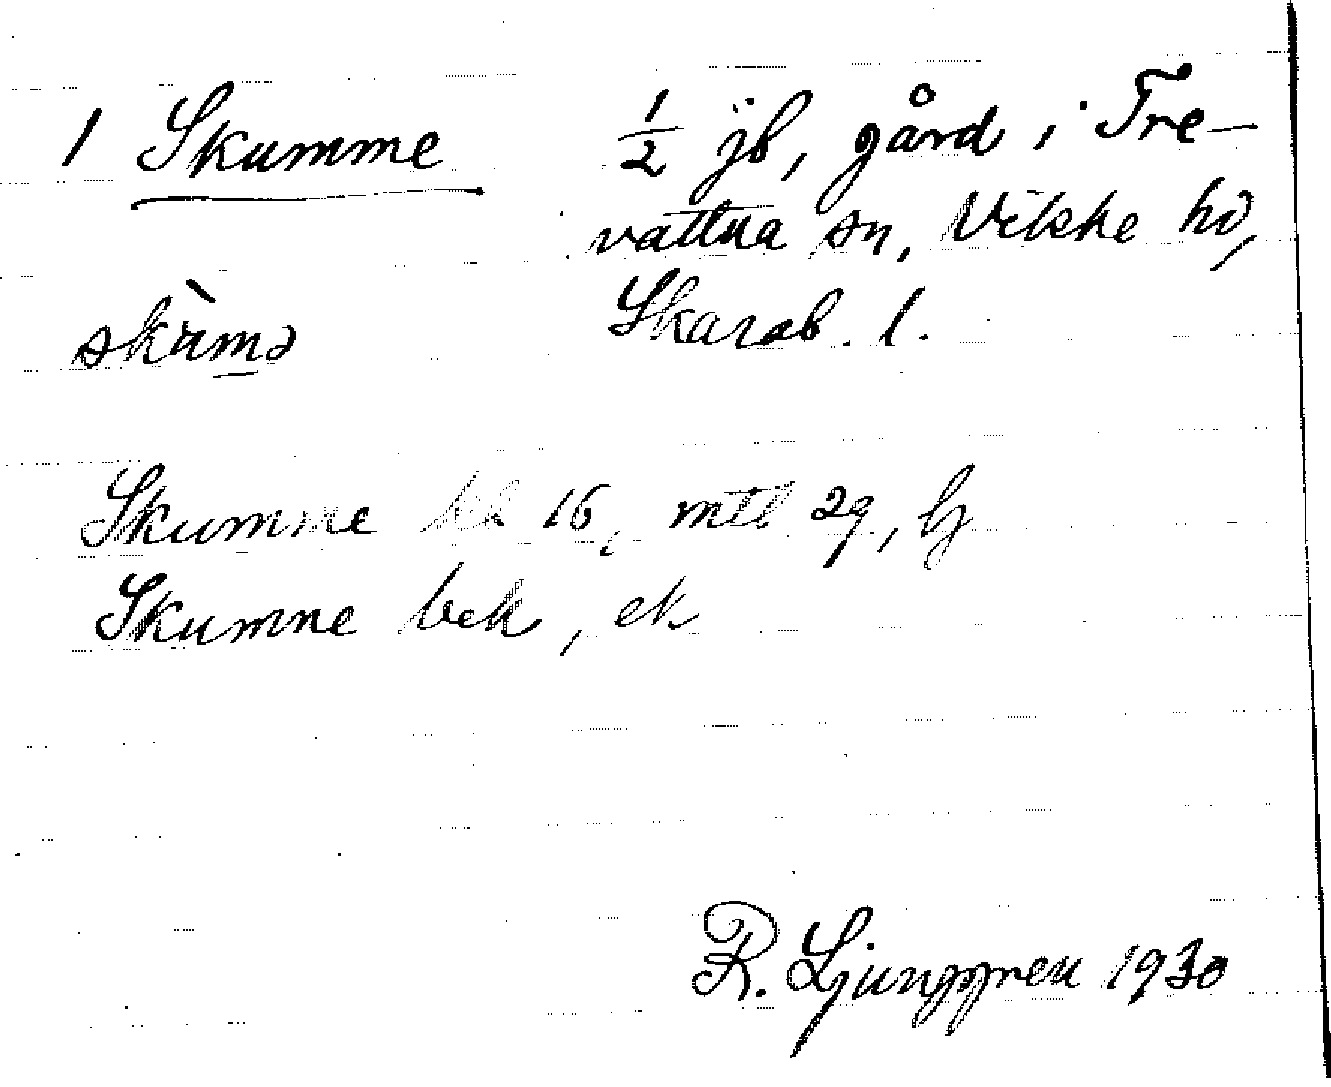 1 Skumme ½ jb, gård i Tre-
vattna sn, Vilske hd,
skùmə Skarab. l.
Skumme bil 16, mtl 29, lj
Skumme bek, ek
R. Ljunggren 1930